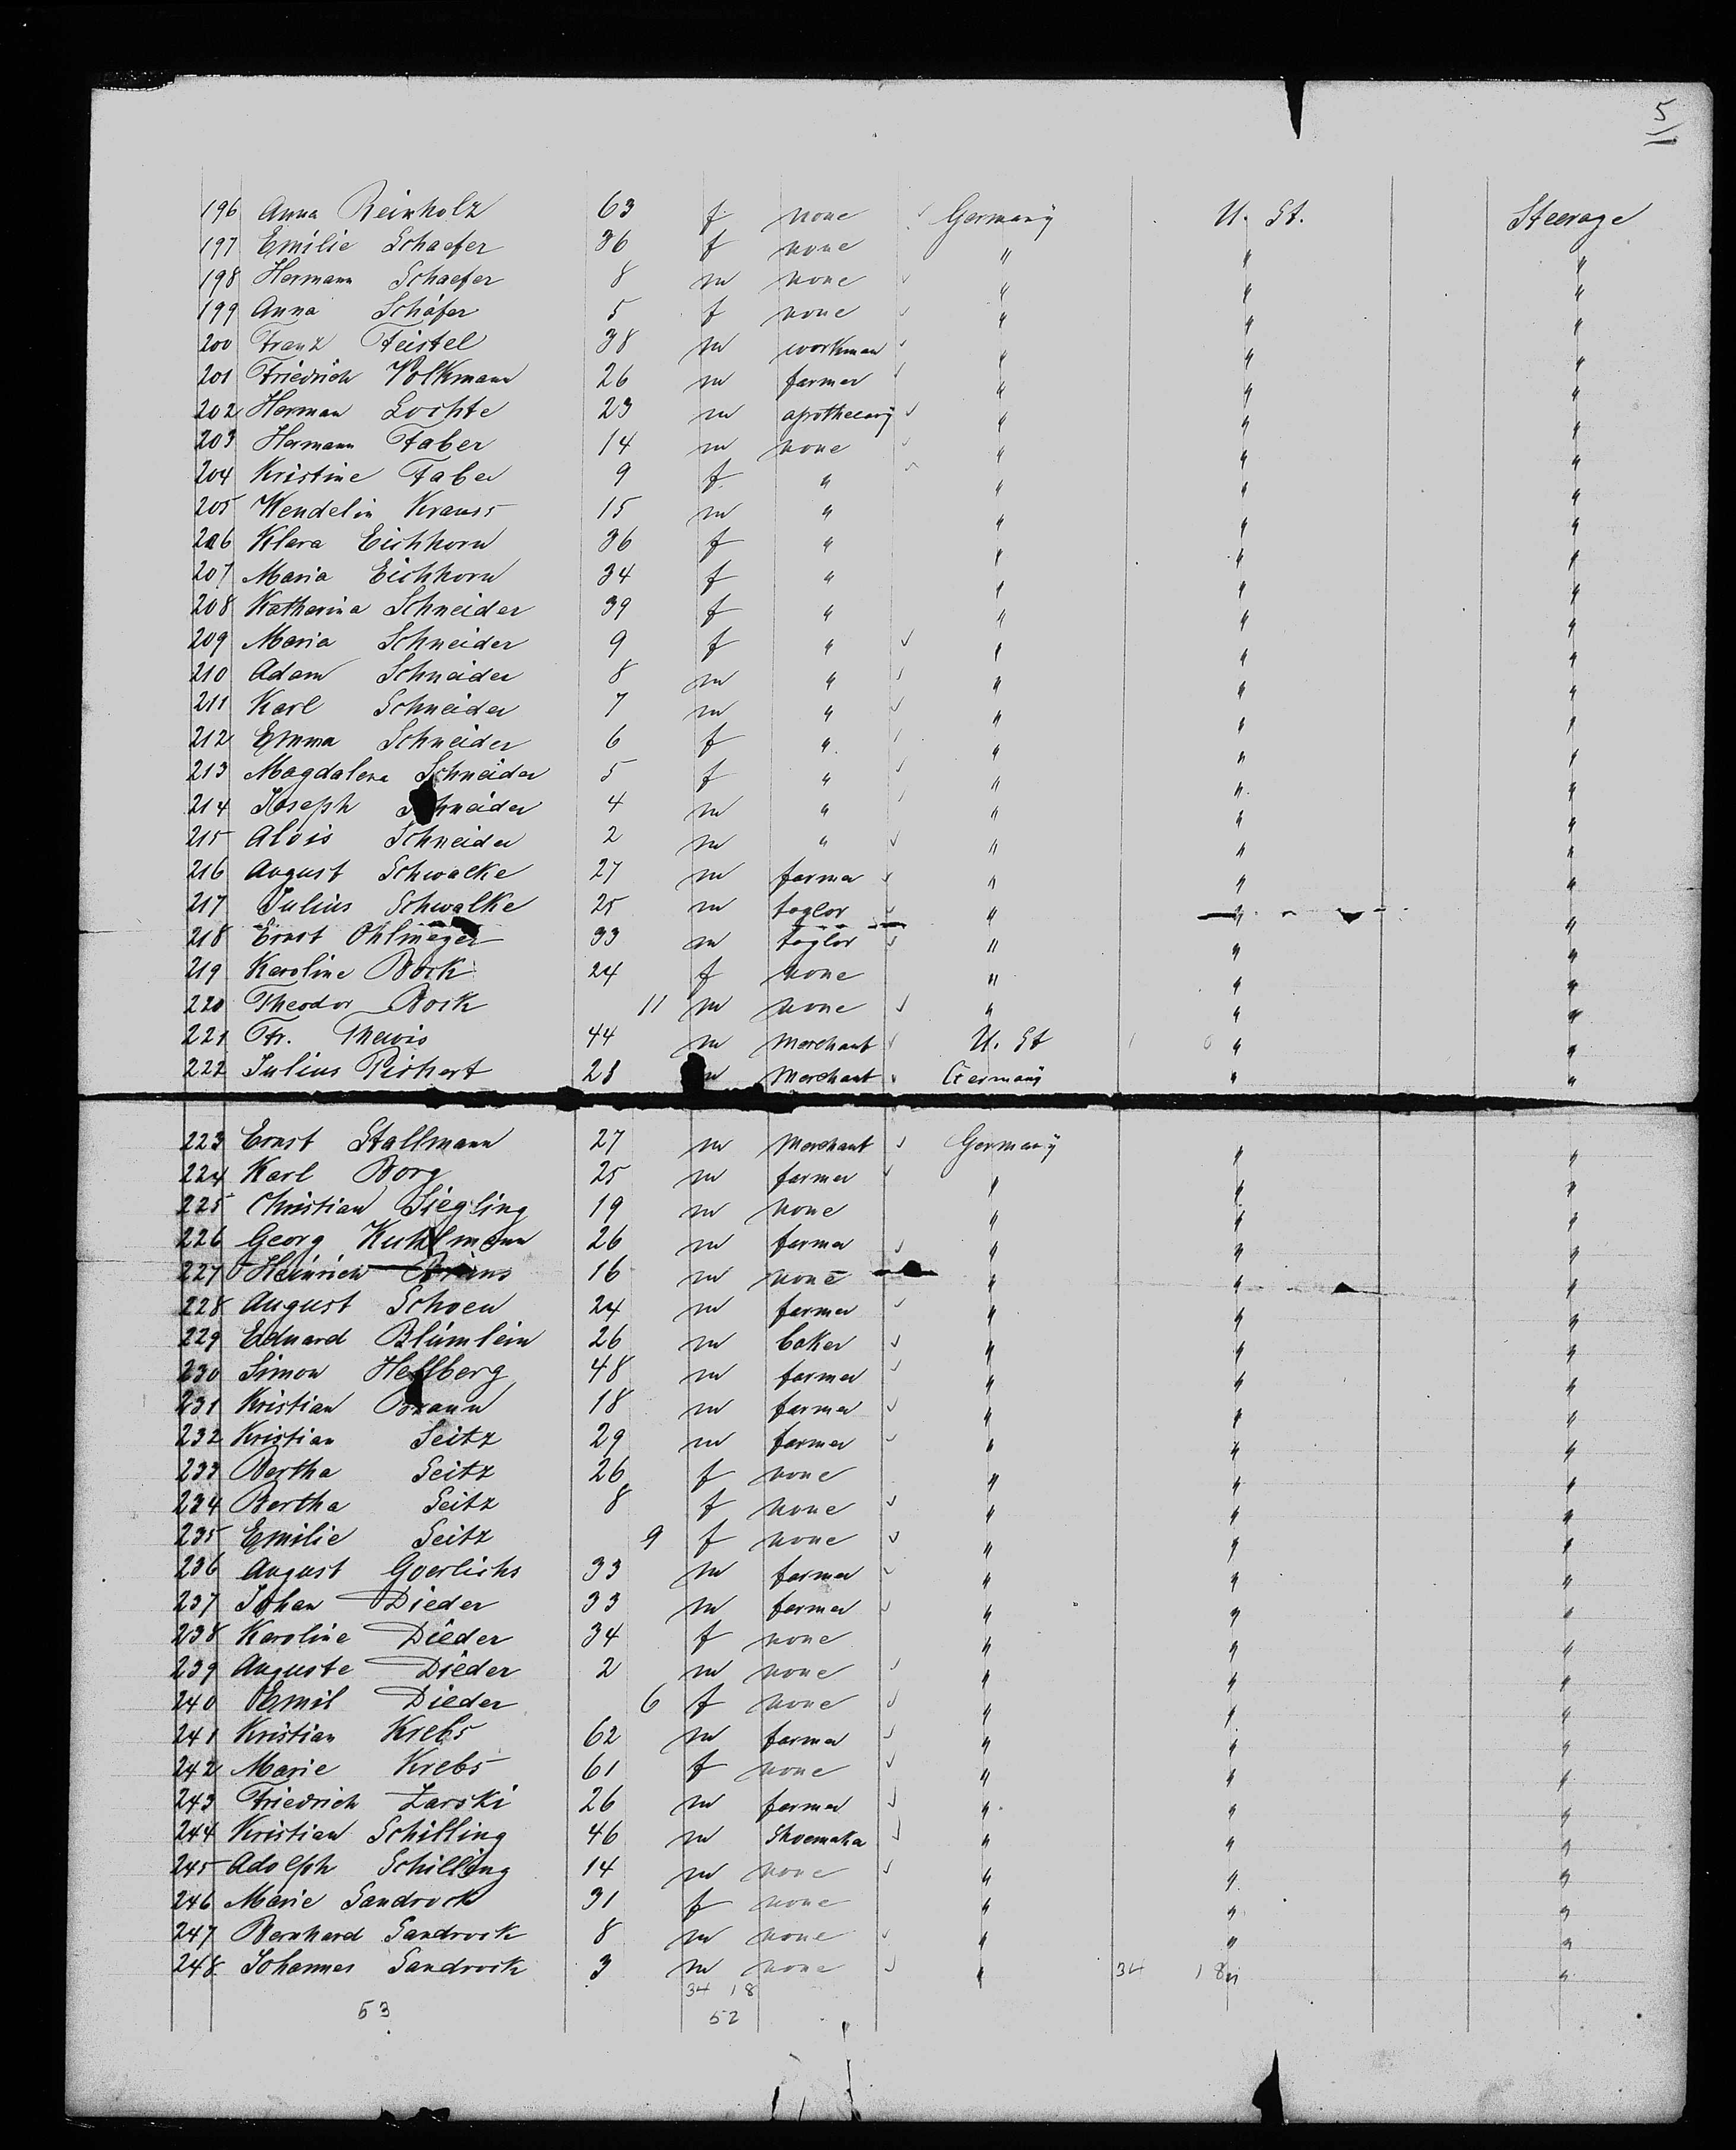 5
196 Anna Reinholz 63 f none Germany U. St. Steerage
197 Emilie Schaefer 36 f none " " "
198 Hermann Schaefer 8 m none " " "
199 Anna Schäfer 5 f none " " "
200 Franz Feistel 38 m workman " " "
201 Friedrich Volkmann 26 m farmer " " "
202 Herman Lochte 23 m apothecary " " "
203 Hermann Faber 14 m none " " "
204 Kristine Faber 9 f " " " "
205 Wendelin Krauss 15 m " " " "
206 Klara Eichhorn 36 f " " " "
207 Maria Eichhorn 34 f " " " "
208 Katharina Schneider 39 f " " " "
209 Maria Schneider 9 f " " " "
210 Adam Schneider 8 m " " " "
211 Karl Schneider 7 m " " " "
212 Emma Schneider 6 f " " " "
213 Magdalena Schneider 5 f " " " "
214 Joseph Schneider 4 m " " " "
215 Alois Schneider 2 m " " " "
216 August Schwalke 27 m farmer " " "
217 Julius Schwalke 25 m taylor " " "
218 Ernst Ohlmeyer 33 m taylor " " "
219 Karoline Bock 24 f none " " "
220 Theodor Bock 11 m none " " "
221 Fr. Thewis 44 m Merchant U. St " "
222 Julius Richert 28 m Merchant Germany " "
223 Ernst Stallmann 27 m Merchant Germany " "
224 Karl Borg 25 m farmer " " "
225 Christian Siegling 19 m none " " "
226 Georg Kuhlmann 26 m farmer " " "
227 Heinrich 16 m none " " "
228 August Schoen 24 m farmer " " "
229 Eduard Blümlein 26 m baker " " "
230 Simon Heßberg 48 m farmer " " "
231 Kristian 18 m farmer " " "
232 Kristian Seitz 29 m farmer " " "
233 Bertha Seitz 26 f none " " "
234 Bertha Seitz 8 f none " " "
235 Emilie Seitz 9 f none " " "
236 August Goerlichs 33 m farmer " " "
237 Johan Dieder 33 m farmer " " "
238 Karoline Dieder 34 f none " " "
239 Auguste Dieder 2 m none " " "
240 Emil Dieder 6 f none " " "
241 Kristian Krebs 62 m farmer " " "
242 Marie Krebs 61 f none " " "
243 Friedrich Zarski 26 m farmer " " "
244 Kristian Schilling 46 m Shoemaker " " "
245 Adolph Schilling 14 m none " " "
246 Marie Sandrock 31 f none " " "
247 Bernhard Sandrock 8 m none " " "
248 Johannes Sandrock 3 m none " 34 18 " "
34 18
53 52